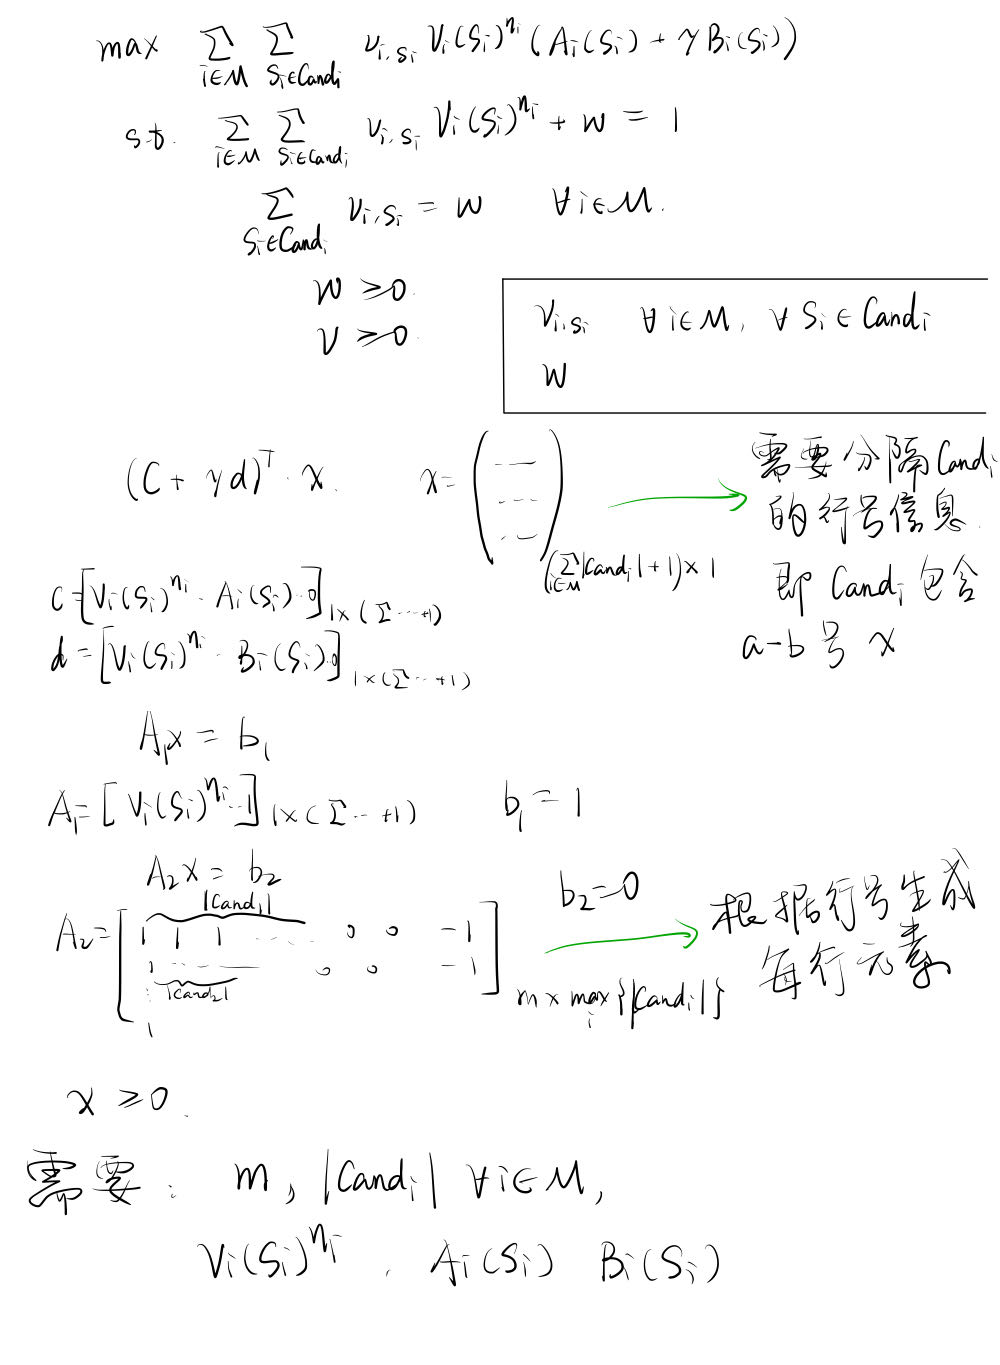 max ∑_{i∈M} ∑_{S_i∈Cand_i} ν_{i,S_i} V_i(S_i)^{η_i} (A_i(S_i) + γ B_i(S_i))
s.t. ∑_{i∈M} ∑_{S_i∈Cand_i} ν_{i,S_i} V_i(S_i)^{η_i} + w = 1
∑_{S_i∈Cand_i} ν_{i,S_i} = w ∀i∈M.
w ≥0.
ν ≥0.
ν_{i,S_i} ∀i∈M, ∀S_i∈Cand_i
w
(C + γd)^T · x. x = ( )_{(∑_{i∈M}|Cand_i|+1)×1}
需要分隔Cand_i
的行号信息.
即 Cand_i 包含
a-b 号 x
c=[V_i(S_i)^{η_i} · A_i(S_i) .0]_{1×(∑···+1)}
d=[V_i(S_i)^{η_i} · B_i(S_i).0]_{1×(∑···+1)}
A_1x = b_1
A_1=[V_i(S_i)^{η_i}..1]_{1×(∑···+1)} b_1=1
A_2x = b_2 b_2=0
|Cand_1|
A_2=[1 1 1 ······ 0 0 -1
1 ······ 0 0 -1
|Cand_2|
⋮
1 ]_{m×max_i{|Cand_i|}}
根据行号生成
每行元素
x ≥0.
需要: m, |Cand_i| ∀i∈M,
V_i(S_i)^{η_i}, A_i(S_i) B_i(S_i)